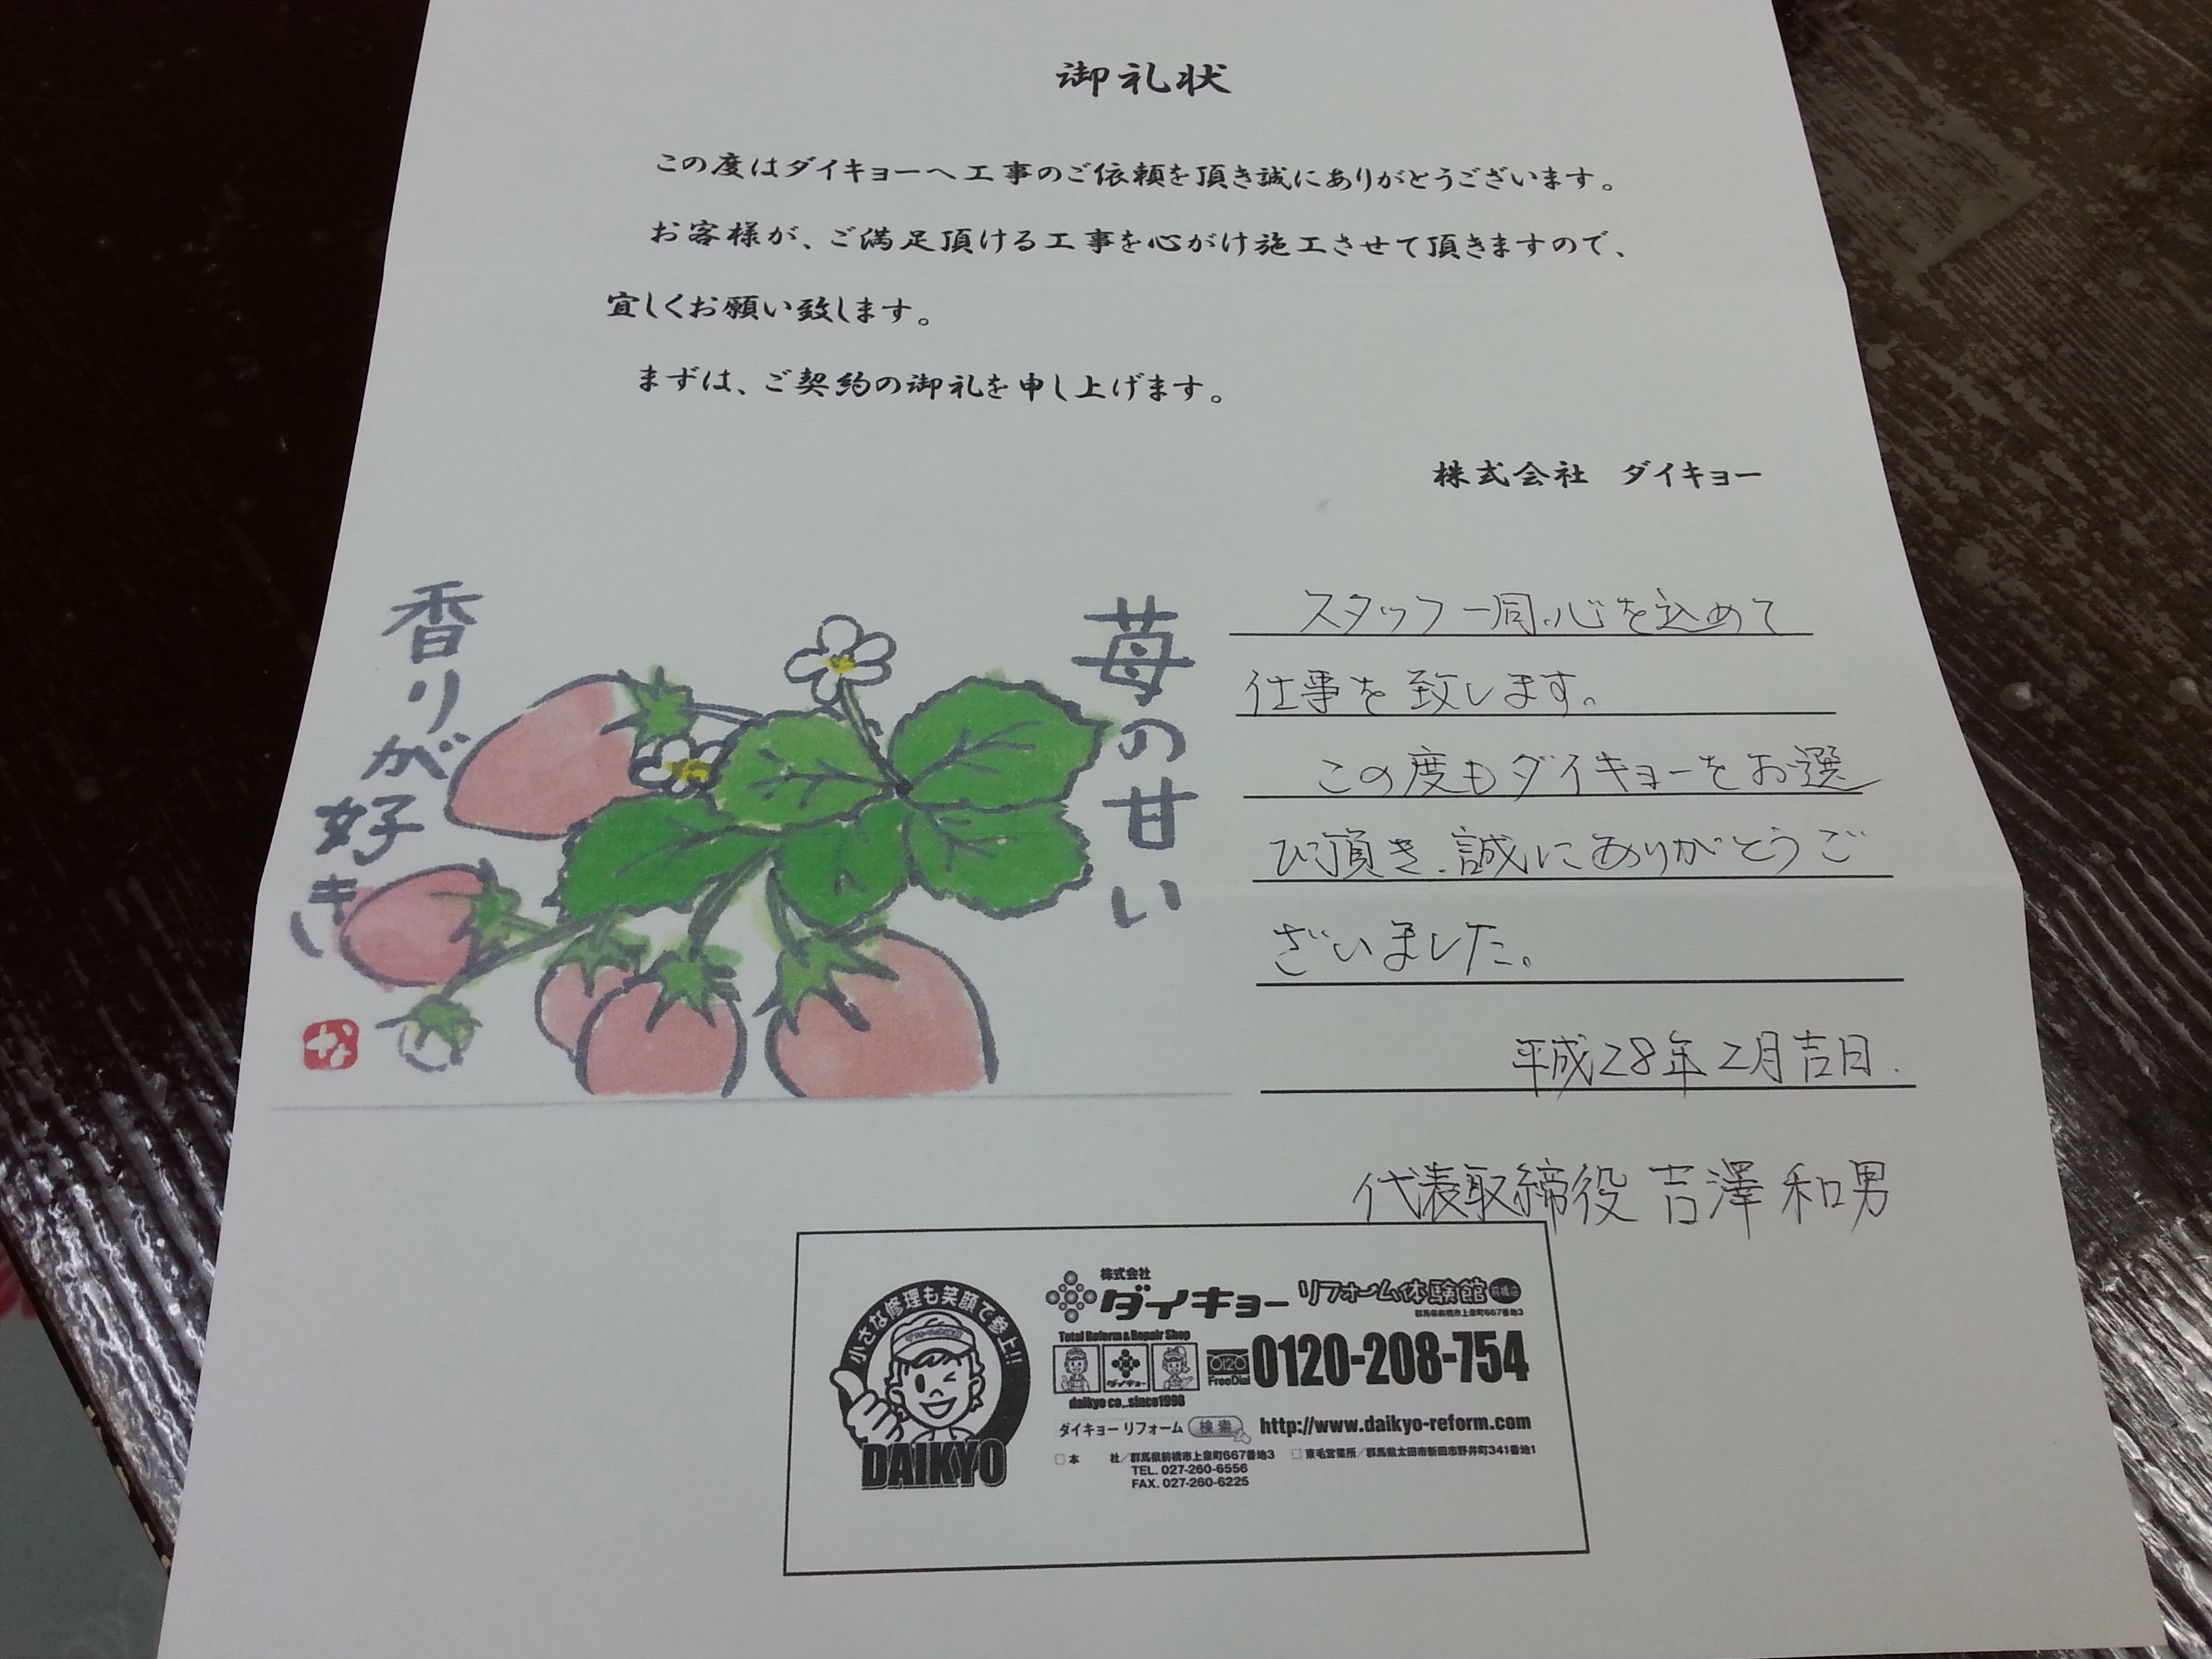 御礼状
この度はダイキョーへ工事のご依頼を頂き誠にありがとうございます。
お客様が、ご満足頂ける工事を心がけ施工させて頂きますので、
宜しくお願い致します。
まずは、ご契約の御礼を申し上げます。
株式会社 ダイキョー
苺の甘い
香りが好き
スタッフ一同、心を込めて
仕事を致します。
この度もダイキョーをお選
び頂き、誠にありがとうご
ざいました。
平成28年2月吉日.
代表取締役 吉澤 和男
小さな修理も笑顔で参上!!
DAIKYO
株式会社
ダイキョー リフォーム体験館 前橋店
群馬県前橋市上泉町667番地3
Total Reform & Repair Shop
ダイキョー
daikyo co,.since1998
0120
FreeDial
0120-208-754
ダイキョー リフォーム 検索 http://www.daikyo-reform.com
□本 社/群馬県前橋市上泉町667番地3 □東毛営業所/群馬県太田市新田市野井町341番地1
TEL. 027-260-6556
FAX. 027-260-6225